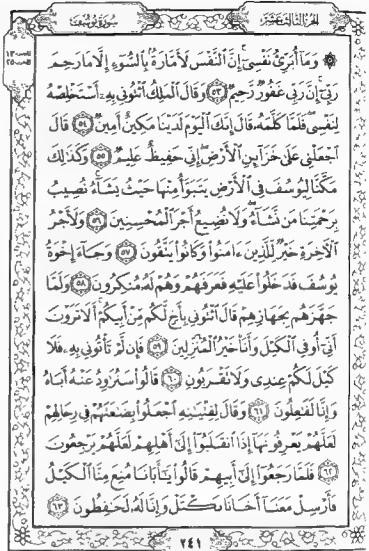 الجزء الثالث عشر
سورة يوسف
۞ وَمَا أُبَرِّئُ نَفْسِىٓ إِنَّ ٱلنَّفْسَ لَأَمَّارَةٌۢ بِٱلسُّوٓءِ إِلَّا مَا رَحِمَ
رَبِّىٓ إِنَّ رَبِّى غَفُورٌ رَّحِيمٌ ٥٣ وَقَالَ ٱلْمَلِكُ ٱئْتُونِى بِهِۦٓ أَسْتَخْلِصْهُ
لِنَفْسِى فَلَمَّا كَلَّمَهُۥ قَالَ إِنَّكَ ٱلْيَوْمَ لَدَيْنَا مَكِينٌ أَمِينٌ ٥٤ قَالَ
ٱجْعَلْنِى عَلَىٰ خَزَآئِنِ ٱلْأَرْضِ إِنِّى حَفِيظٌ عَلِيمٌ ٥٥ وَكَذَٰلِكَ
مَكَّنَّا لِيُوسُفَ فِى ٱلْأَرْضِ يَتَبَوَّأُ مِنْهَا حَيْثُ يَشَآءُ نُصِيبُ
بِرَحْمَتِنَا مَن نَّشَآءُ وَلَا نُضِيعُ أَجْرَ ٱلْمُحْسِنِينَ ٥٦ وَلَأَجْرُ
ٱلْأَخِرَةِ خَيْرٌ لِّلَّذِينَ ءَامَنُوا۟ وَكَانُوا۟ يَتَّقُونَ ٥٧ وَجَآءَ إِخْوَةُ
يُوسُفَ فَدَخَلُوا۟ عَلَيْهِ فَعَرَفَهُمْ وَهُمْ لَهُۥ مُنكِرُونَ ٥٨ وَلَمَّا
جَهَّزَهُم بِجَهَازِهِمْ قَالَ ٱئْتُونِى بِأَخٍ لَّكُم مِّنْ أَبِيكُمْ أَلَا تَرَوْنَ
أَنِّىٓ أُوفِى ٱلْكَيْلَ وَأَنَا۠ خَيْرُ ٱلْمُنزِلِينَ ٥٩ فَإِن لَّمْ تَأْتُونِى بِهِۦ فَلَا
كَيْلَ لَكُمْ عِندِى وَلَا تَقْرَبُونِ ٦٠ قَالُوا۟ سَنُرَٰوِدُ عَنْهُ أَبَاهُ
وَإِنَّا لَفَٰعِلُونَ ٦١ وَقَالَ لِفِتْيَٰنِهِ ٱجْعَلُوا۟ بِضَٰعَتَهُمْ فِى رِحَالِهِمْ
لَعَلَّهُمْ يَعْرِفُونَهَآ إِذَا ٱنقَلَبُوٓا۟ إِلَىٰٓ أَهْلِهِمْ لَعَلَّهُمْ يَرْجِعُونَ
٦٢ فَلَمَّا رَجَعُوٓا۟ إِلَىٰٓ أَبِيهِمْ قَالُوا۟ يَٰٓأَبَانَا مُنِعَ مِنَّا ٱلْكَيْلُ
فَأَرْسِلْ مَعَنَآ أَخَانَا نَكْتَلْ وَإِنَّا لَهُۥ لَحَٰفِظُونَ ٦٣
٢٤١